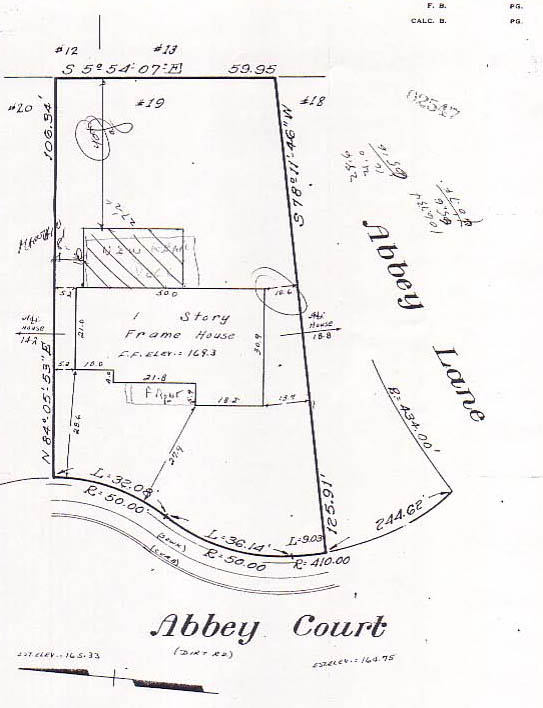 F. B. PG.
CALC. B. PG.
#12 #13
S 5° 54' 07" E 59.95
#20 #19 #18
106.34'
S 78° 11' 46" W
82547
40'
27.2
Abbey Lane
NEW
5.2 50.0 10.6
Adj. House 14.2
21.0
1 Story
Frame House
F.F. ELEV. = 169.3
30.9
Adj. House 18.8
5.2 10.0
4.0
21.8
Front
5.9
18.2
13.7
N 84° 05' 53" E
28.6
27.9
R = 434.00'
125.91'
244.62'
L = 32.08'
R = 50.00'
L = 36.14'
R = 50.00
L = 9.03
R = 410.00
(CONK)
(CURB)
Abbey Court
(DIRT RD)
EST. ELEV. = 165.33
EST. ELEV. = 164.75